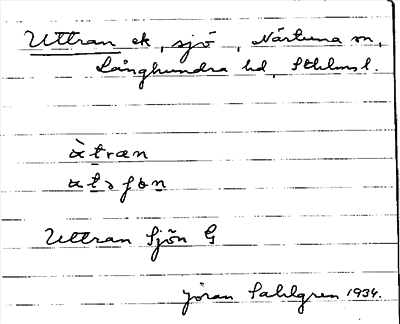 Uttran ek, sjö, Närtuna sn,
Långhundra hd, Sthlms l.
Uttran Sjön G
Jöran Sahlgren 1934.